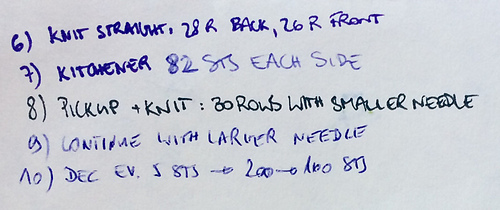 6) KNIT STRAIGHT, 28 R BACK, 26 R FRONT
7) KITCHENER 82 STS EACH SIDE
8) PICKUP + KNIT : 30 ROWS WITH SMALLER NEEDLE
9) CONTINUE WITH LARGER NEEDLE
10) DEC EV. 5 STS → 200 → 160 STS